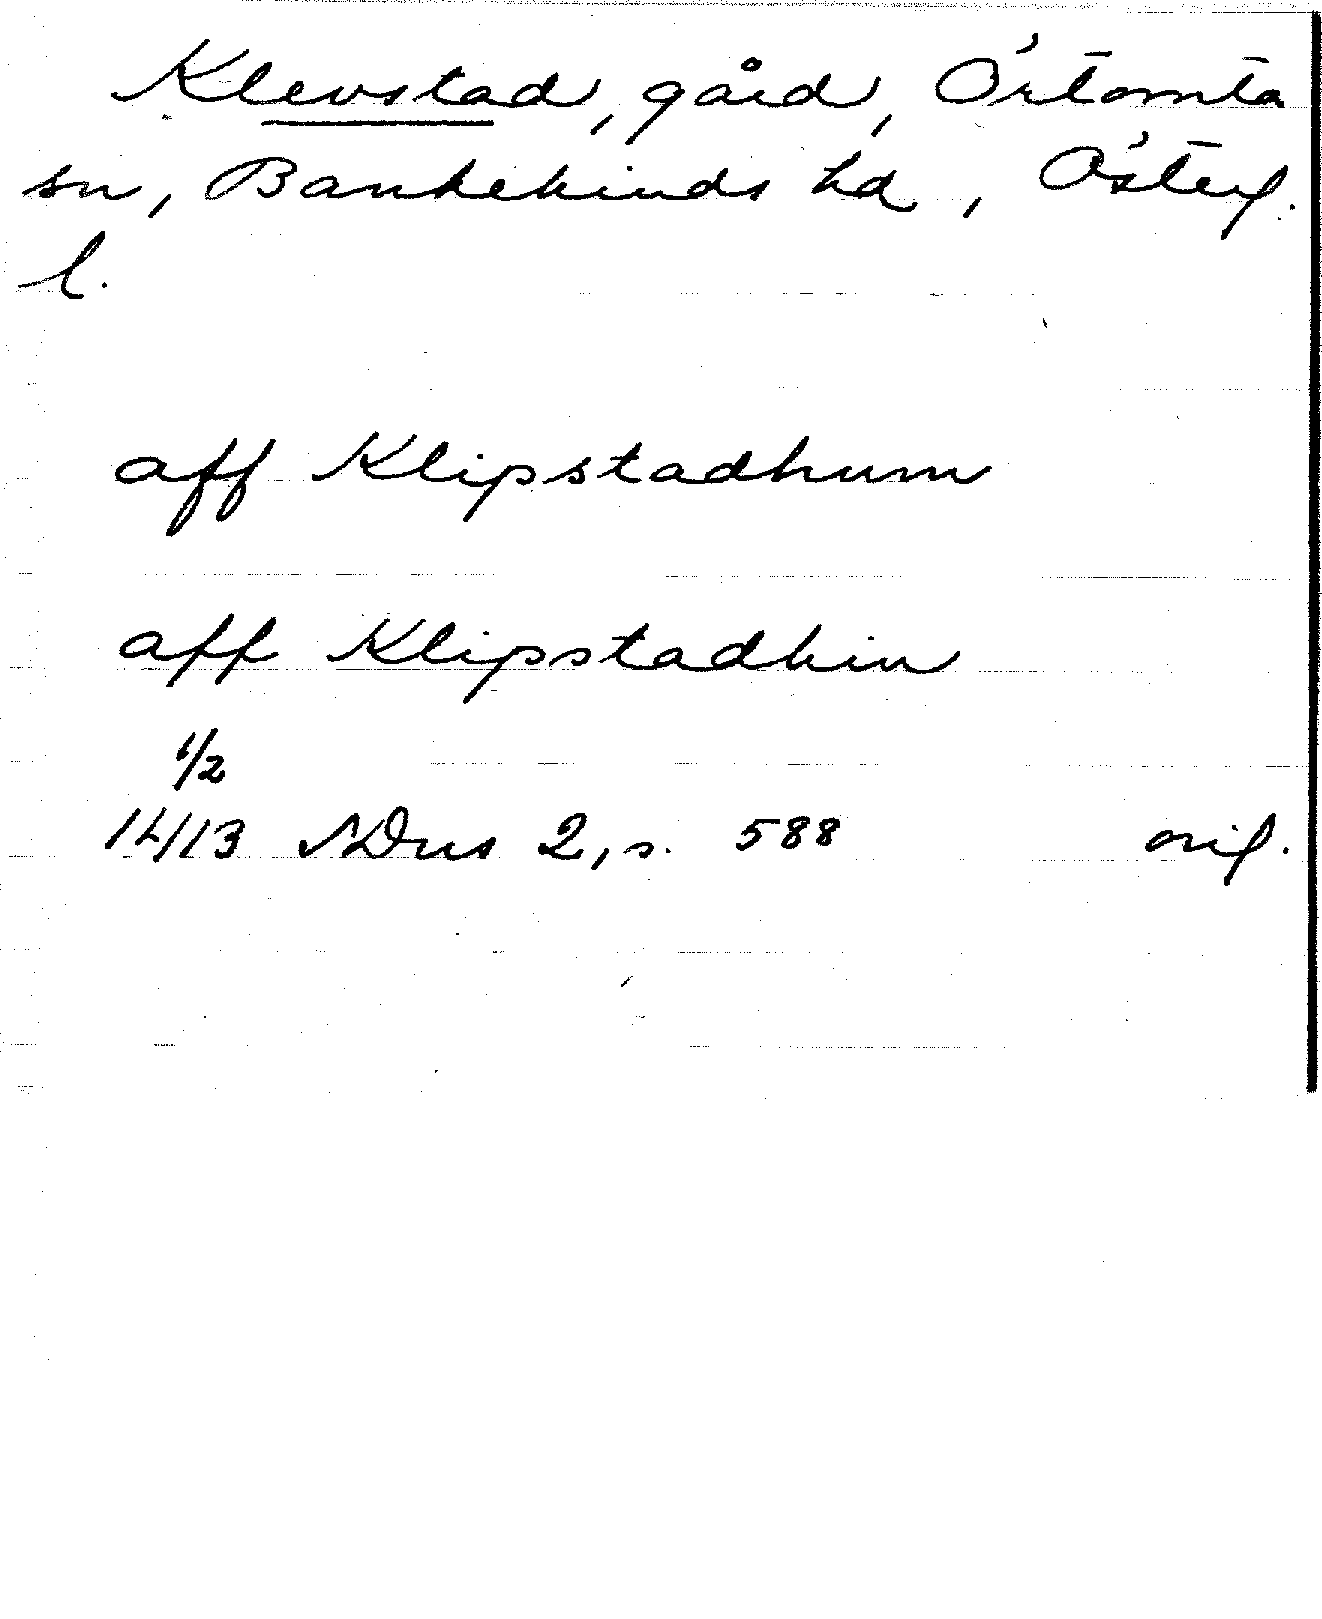 Klevstad, gård, Örtomta
sn, Bankekinds hd, Österg.
l.
aff Klipstadhum
aff Klipstadhin
1/2
1413 SDns 2, s. 588 orig.